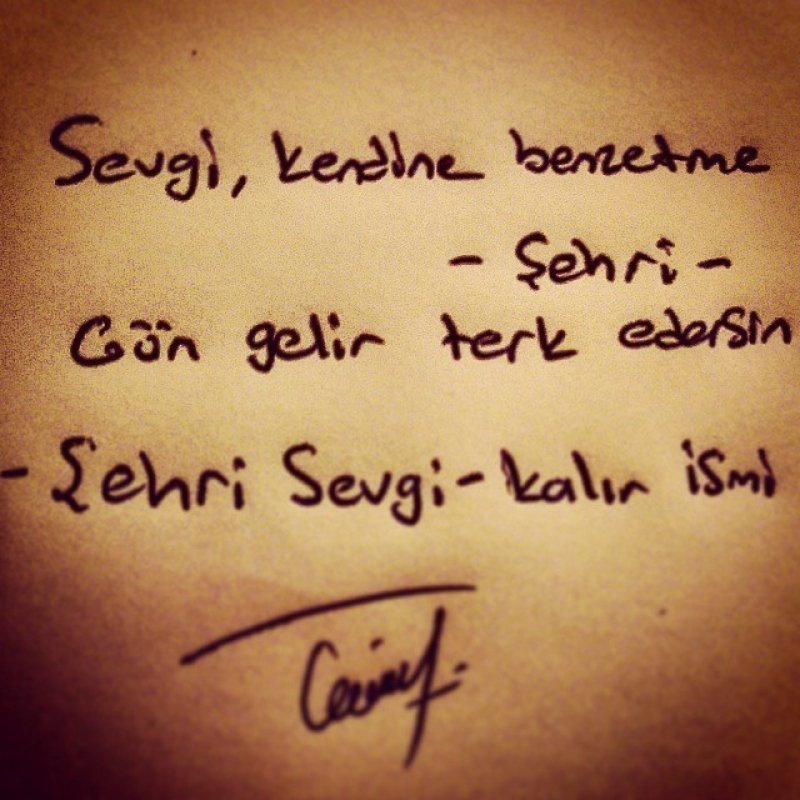 Sevgi, kendine benzetme
- Şehri -
Gün gelir terk edersin
- Şehri Sevgi - kalır ismi